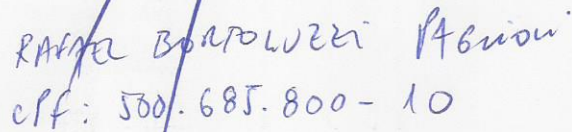 RAFAEL BORTOLUZZI PAGNONI
CPF: 500.685.800-10